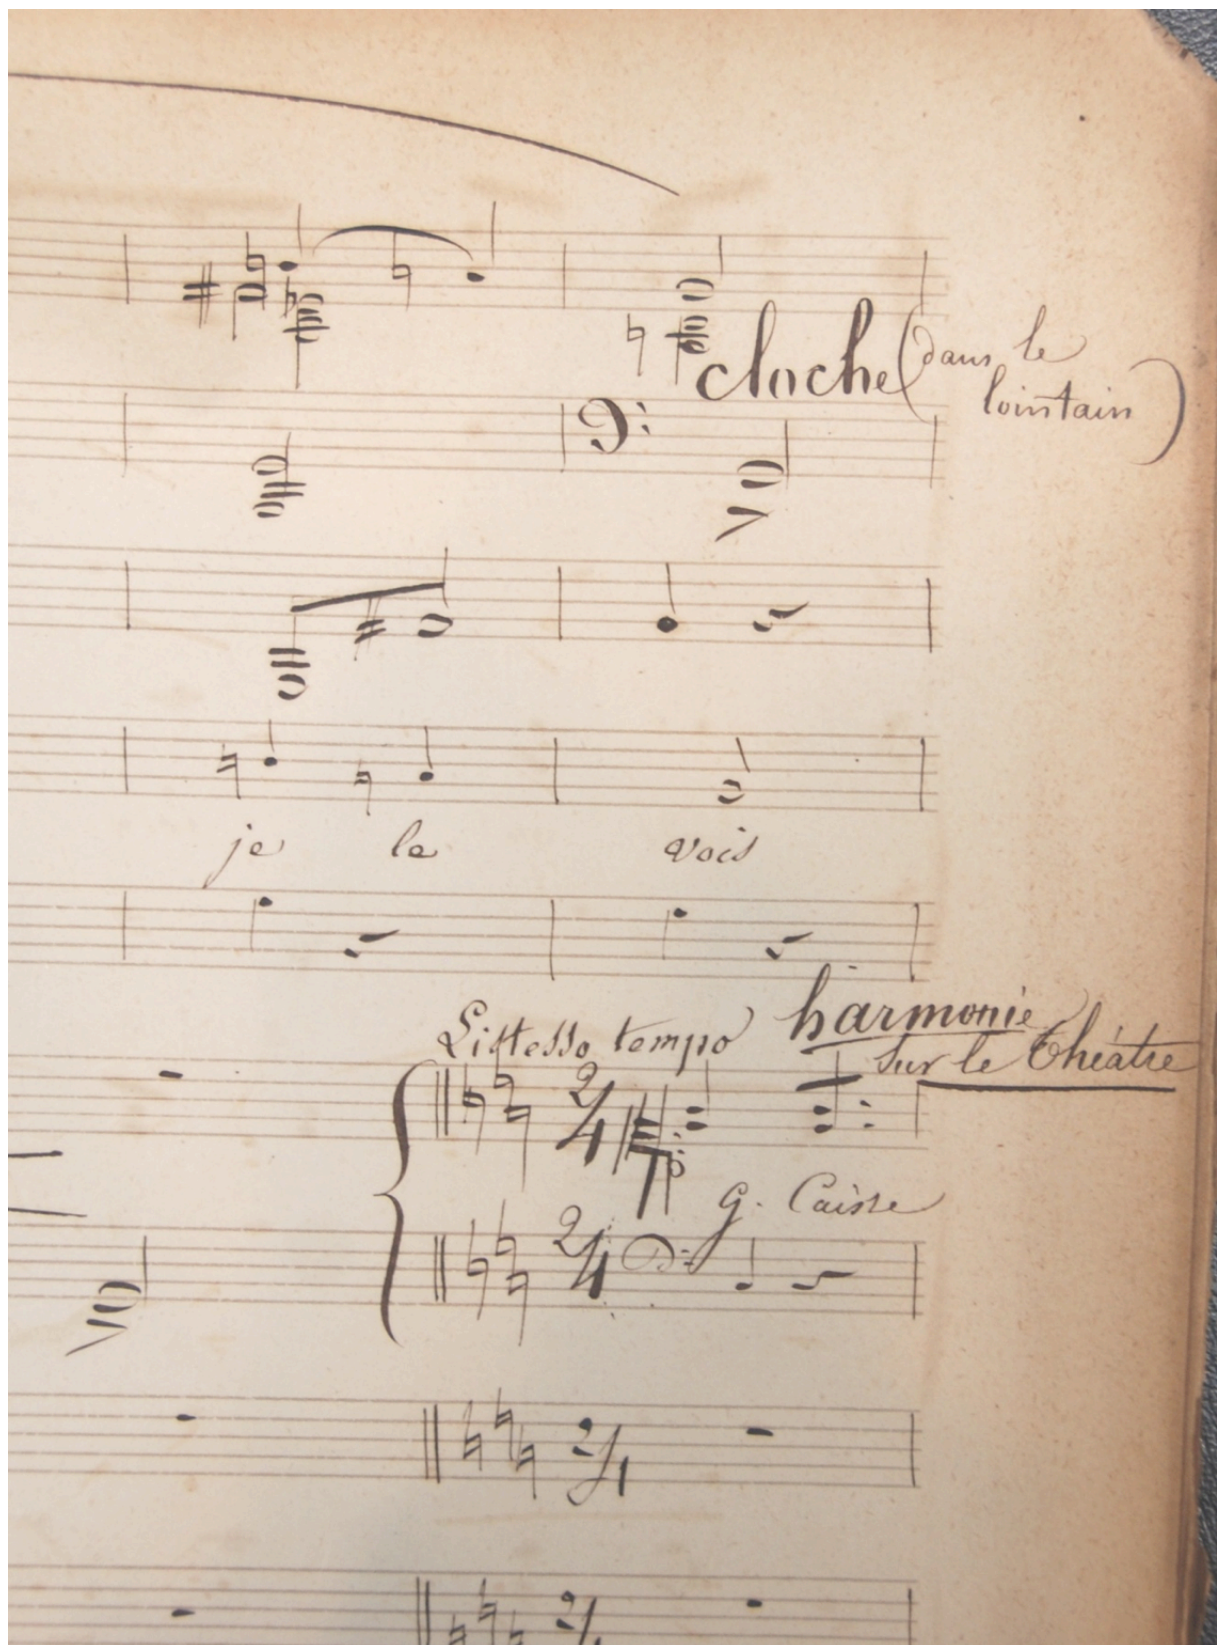 cloche (dans le
lointain)
je le vois
Listesso tempo
harmonie
sur le théâtre
2/4
p
G. Caisse
2/4
2/4
2/4